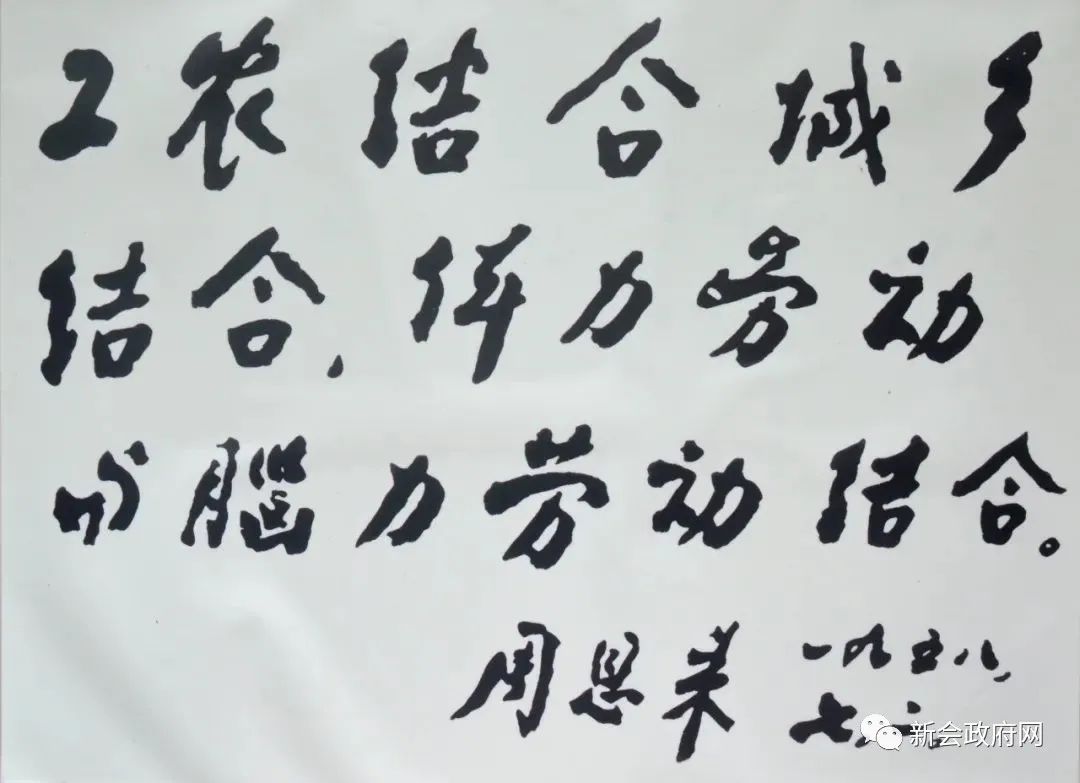 工农结合城乡
结合，体力劳动
与腦力劳动结合。
周恩来 一九五八，
七
新会政府网